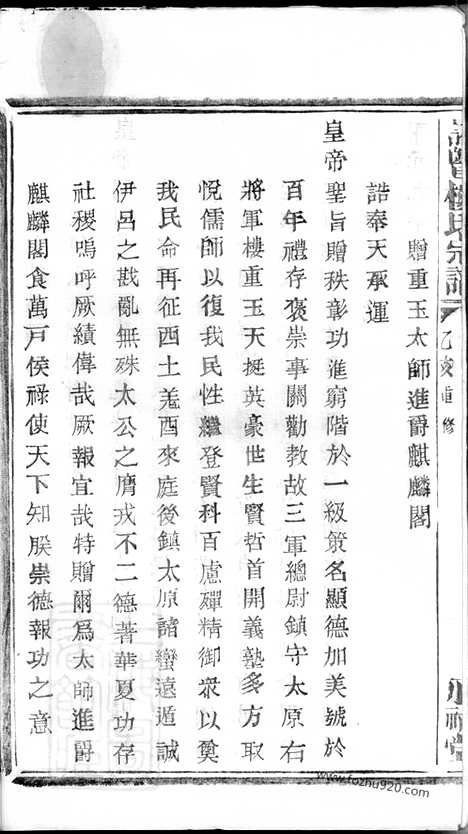 贈重玉太師進爵麒麟閣
誥奉天承運
皇帝聖旨贈秩彰功進窮階於一級策名顯德加美號於
百年禮存褒崇事關勸教故三軍總尉鎮守太原右
將軍樓重玉天挺英豪世生賢哲首開義塾多方取
悅儒師以復我民性繼登賢科百慮殫精御衆以奠
我民命再征西土羗酉來庭後鎮太原諸蠻遠遁誠
伊呂之戡亂無殊太公之膺戎不二德著華夏功存
社稷嗚呼厥績偉哉厥報宜哉特贈爾爲太師進爵
麒麟閣食萬戸侯祿使天下知朕崇德報功之意
樓氏宗譜
乙亥重修
www.fozhu920.com